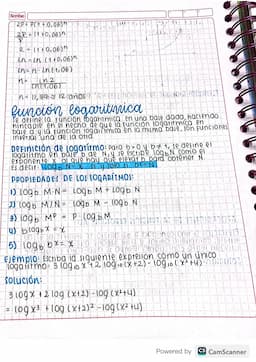 Scribe
2P = P(1+0,06)ⁿ
2P = (1+0,06)ⁿ
2 = (1+0,06)ⁿ
ln = ln (1+0,06)ⁿ
ln = n· ln (1,06)
n = ln2
ln(1,06)
función logarítmica
se define la función logarítmica en una base dada, haciendo
hincapié en el hecho de que la función logarítmica en
base a y la función en la misma base, son funciones
inversa una de la otra
DEFINICIÓN de logaritmo: para b>0 y b≠1, se define el
logaritmo en base b de N, y se escribe logb N como el
exponente x al que hay que elevar b para obtener N
es decir
PROPIEDADES DE LOS LOGARITMOS:
1) logb M·N = logb M + logb N
2) logb M/N = logb M - logb N
3) logb Mᴾ = P logb M
4) b logb x = x
5) logb bˣ = x
Ejemplo: Escriba la siguiente expresión como un único
logaritmo: 3 log₁₀ x + 2 log₁₀ (x+2) - log₁₀ (x²+4)
Solución:
3 log x + 2 log (x+2) - log (x²+4)
= log x³ + log (x+2)² - log (x²+4)
Powered by CS CamScanner